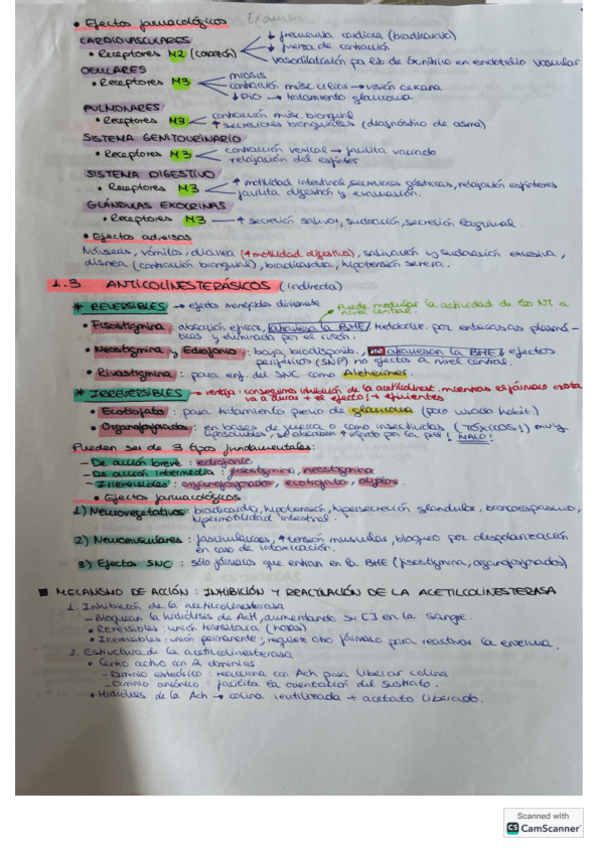 • Efectos farmacológicos
Examen
CARDIOVASCULARES
• Receptores M2 (corazón)
↓ frecuencia cardiaca (bradicardia)
↓ fuerza de contracción
vasodilatación por lib de Ox nítrico en endotelio vascular
OCULARES
• Receptores M3
miosis
contracción músc. ciliar → visión cercana
↓ PIO → tratamiento glaucoma
PULMONARES
• Receptores M3
contracción musc. bronquial
↑ secreciones bronquiales (diagnóstico de asma)
SISTEMA GENITOURINARIO
• Receptores M3
contracción vesical → facilita vaciado
relajación del esfínter
SISTEMA DIGESTIVO
• Receptores M3
↑ motilidad intestinal, secreciones gástricas, relajación esfínteres
facilita digestión y evacuación.
GLÁNDULAS EXOCRINAS
• Receptores M3 → ↑ secreción salivar, sudoración, secreción lagrimal.
• Efectos adversos
Náuseas, vómitos, diarrea (↑ motilidad digestiva), salivación y sudoración excesiva,
disnea (contracción bronquial), bradicardia, hipotensión severa.
1.3 ANTICOLINESTERÁSICOS (indirecta)
* REVERSIBLES → efecto
Puede modular la actividad de NT a
nivel central.
• Fisostigmina: absorción eficaz, atraviesa la BHE, metaboliz. por esterasas plasmá-
ticas y eliminada por el riñón.
• Neostigmina y Edrofonio: baja biodisponib., NO atraviesan la BHE, efectos
periféricos (SNP) no efectos a nivel central.
• Rivastigmina: para enf. del SNC como Alzheimer.
* IRREVERSIBLES → ventaja: conseguimos inhibición de la acetilcolinest. mientras el fármaco exista
va a durar + el efecto! + eficientes
• Ecotiofato: para tratamiento previo de glaucoma (poco usado habit.)
• Organofosforado: en bases de guerra o como insecticidas (TÓXICOS!) muy
liposolubles, se absorben ↑ rápido por la piel! ¡NALO!
Pueden ser de 3 tipos fundamentales:
– De acción breve: edrofonio
– De acción intermedia: fisostigmina, neostigmina
– Irreversibles: organofosforados, ecotiofato,
• Efectos farmacológicos
1) Neurovegetativos: bradicardia, hipotensión, hipersecreción glandular, broncoespasmo,
hipermotilidad intestinal.
2) Neuromusculares: fasciculaciones, ↑ tensión muscular, bloqueo por despolarización
en caso de intoxicación.
3) Efectos SNC: sólo fármacos que entran en la BHE (fisostigmina, organofosforados)
■ MECANISMO DE ACCIÓN: INHIBICIÓN Y REACTIVACIÓN DE LA ACETILCOLINESTERASA
1. Inhibición de la acetilcolinesterasa
– Bloquean la hidrólisis de Ach, aumentando su [] en la sangre.
• Reversibles: unión transitoria (horas)
• Irreversibles: unión permanente; requiere otro fármaco para reactivar la enzima.
2. Estructura de la acetilcolinesterasa
• Centro activo con 2 dominios
– Dominio esteárico: reacciona con Ach para liberar colina
– Dominio aniónico: facilita la orientación del sustrato.
• Hidrólisis de la Ach → colina reutilizada + acetato liberado.
Scanned with
CS CamScanner